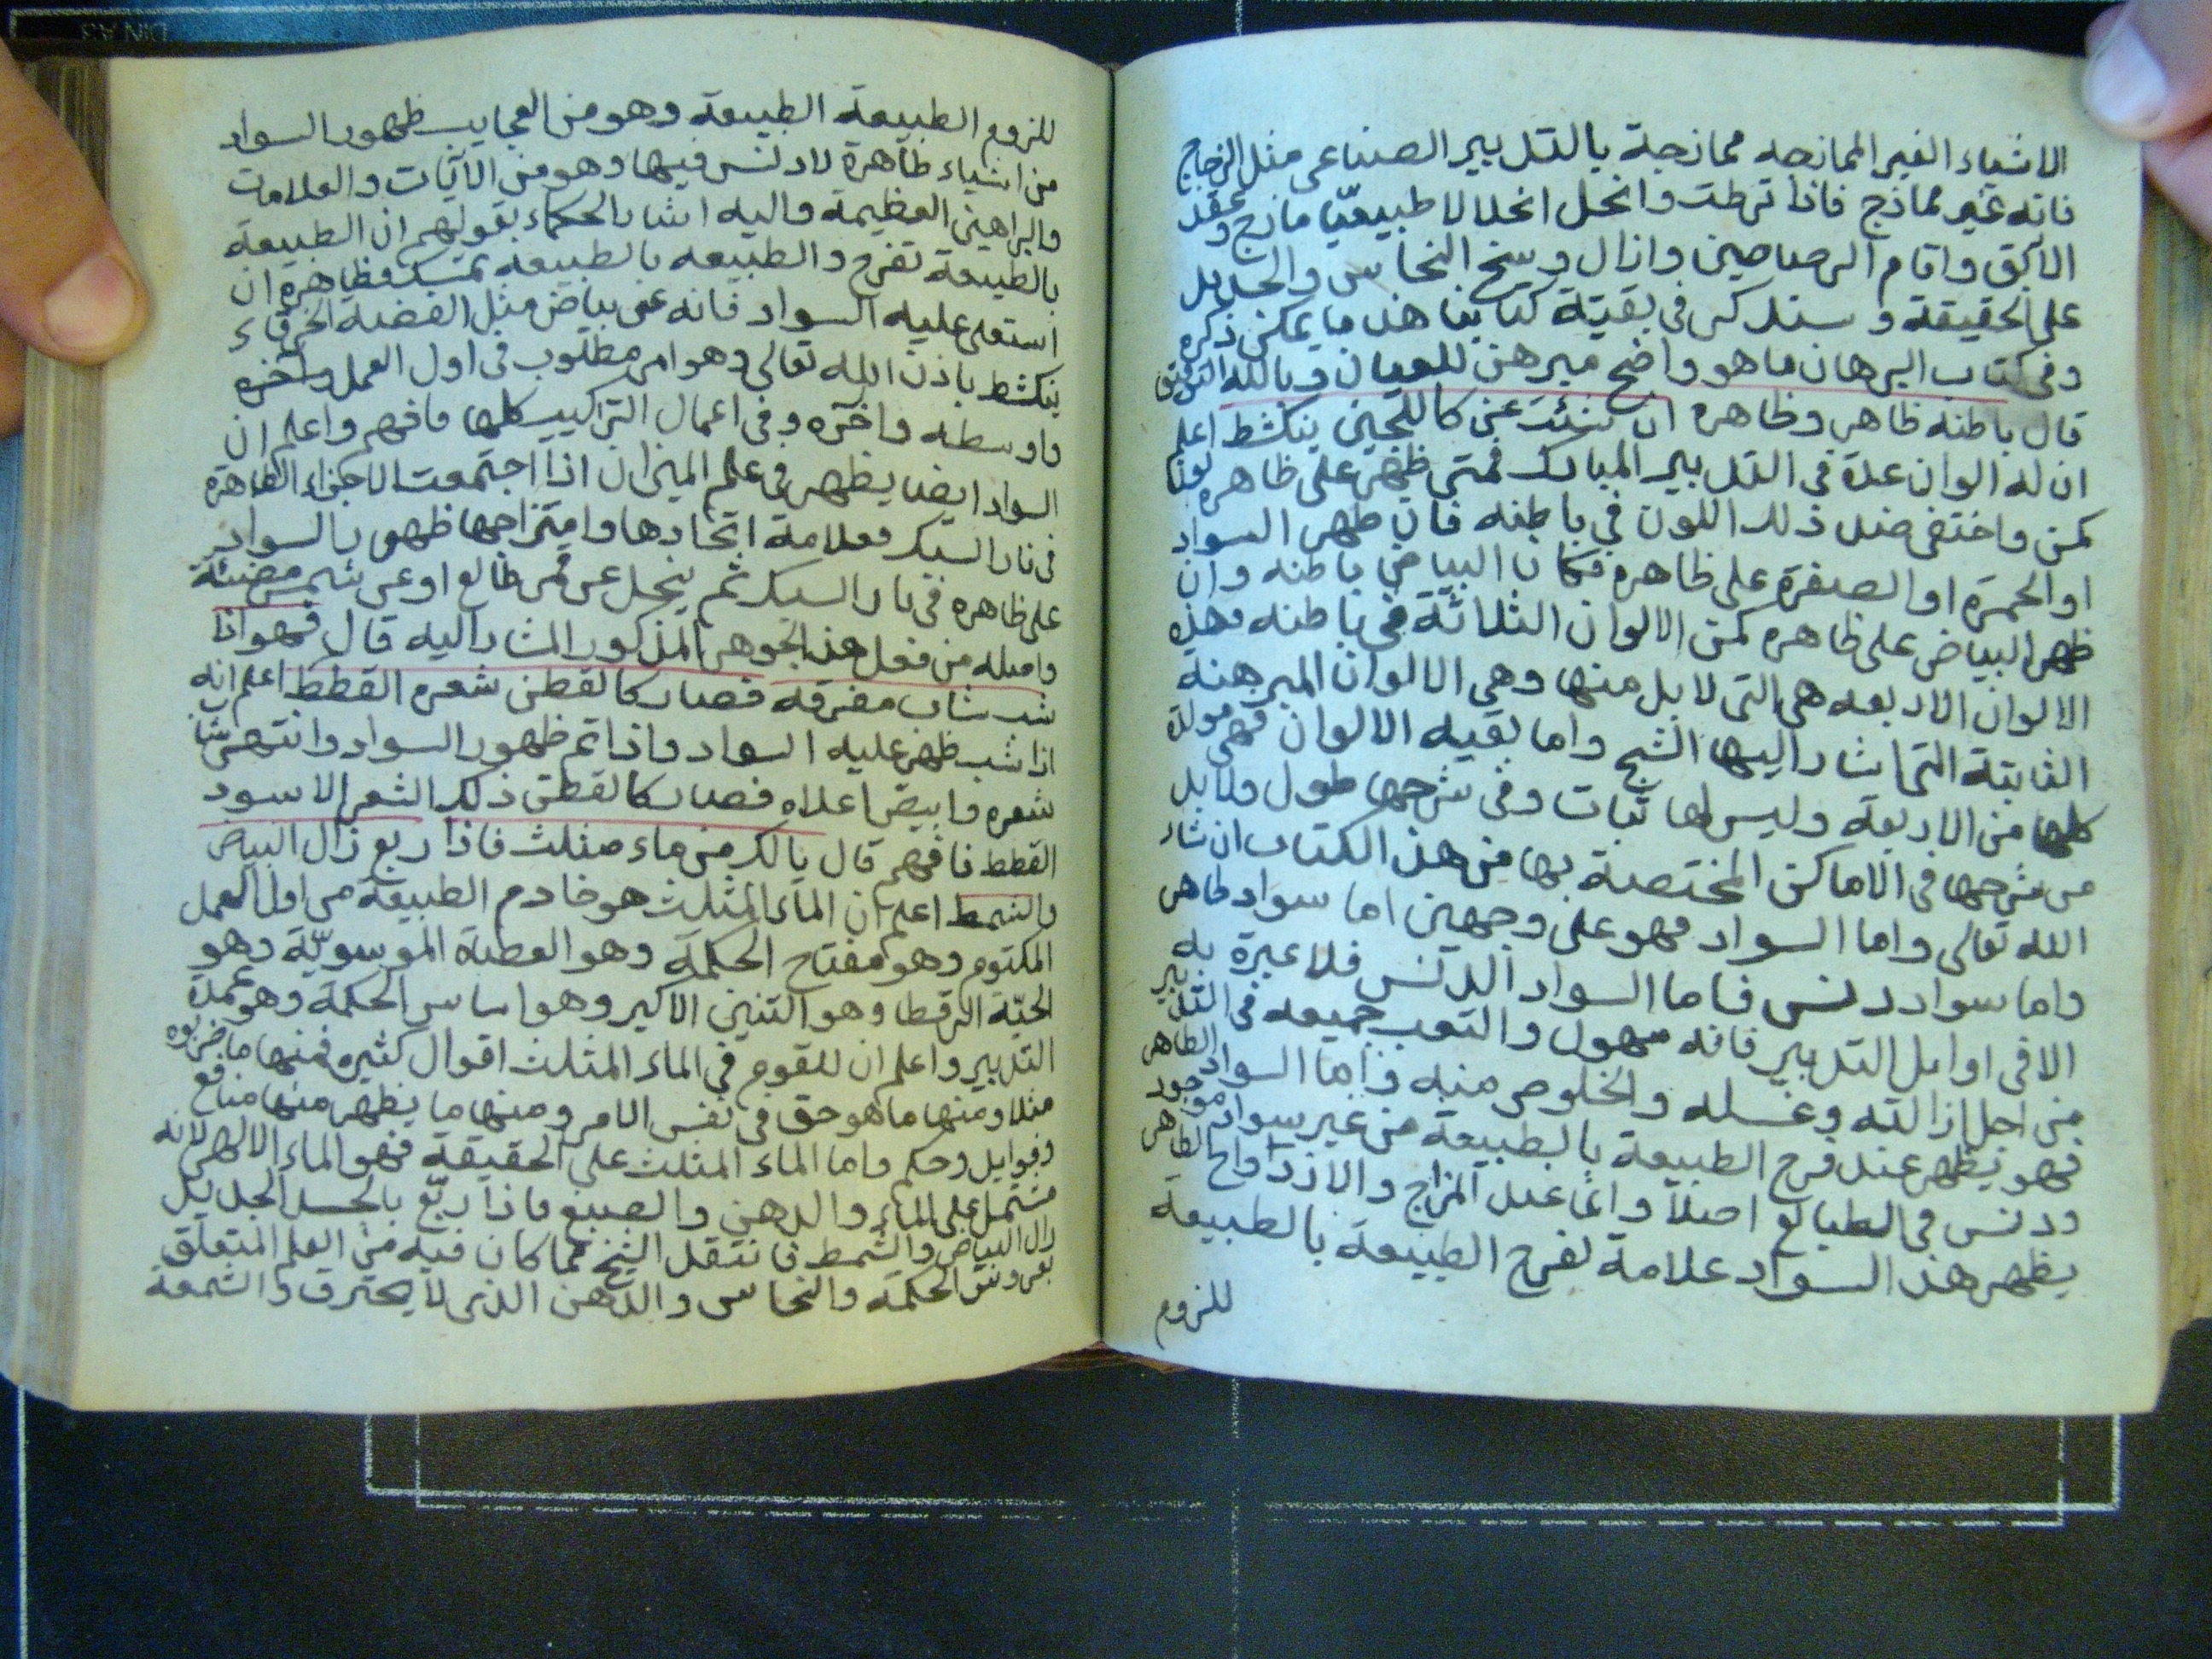 الاشياء الغير الممازجه ممازجة بالتدبير الصناعى مثل الزجاج
فانه غير ممازج فاذا ترطت وانحل انحلالا طبيعيّا مازج وعقد
الآبق واقام الرصاصين وازال وسخ النحاس والحديد
على الحقيقة وسنذكر فى بقيّة كتابنا هذا ما يمكن ذكره
وفى كتاب البرهان ما هو واضح مبرهن للعيان وبالله التوفيق
قال باطنه ظاهر وظاهره ان شئت عن كاللجين ينكشط اعلم
ان له الوان عدة فى التدبير المبارك فمتى ظهر على ظاهره لونا
كمن واختفى ضد ذلك اللون فى باطنه فان ظهر السواد
او الحمرة او الصفرة على ظاهره فكان البياض باطنه وان
ظهر البياض على ظاهره كمن الالوان الثلاثة فى باطنه وهذه
الالوان الاربعه هى التى لا بد منها وهى الالوان المبرهنة
الثابتة التى اشار اليها الشيخ واما بقيه الالوان فهى مولدة
كلها من الاربعة وليس لها ثبات وفى شرحها طول ولا بد
من شرحها فى الاماكن المختصة بها من هذا الكتاب ان شاء
الله تعالى واما السواد فهو على وجهين اما سواد طاهر
واما سواد دنس فاما السواد الدنس فلا عبرة به
الا فى اوايل التدبير فانه مهول والتعب جميعه فى التدبير
من اجل ازالته وغسله والخلوص منه واما السواد الطاهر
فهو يظهر عند فرح الطبيعة بالطبيعة من غير سواد موجود
ودنس فى الطبائع اصلا وانما عند المزاج والازدواج الطاهر
يظهر هذا السواد علامة لفرح الطبيعة بالطبيعة
للزوم
للزوم الطبيعة الطبيعة وهو من العجايب ظهور السواد
من اشياء طاهرة لا دنس فيها وهو من الآيات والعلامت
والبراهين العظيمة واليه اشار الحكماء بقولهم ان الطبيعة
بالطبيعة تفرح والطبيعه بالطبيعه تمسك فظاهره ان
استعلى عليه السواد فانه عن بياض مثل الفضة الخرقاء
ينكشط باذن الله تعالى وهو امر مطلوب فى اول العمل واخره
واوسطه واخره وفى اعمال التراكيب كلها فافهم واعلم ان
السواد ايضا يظهر فى علم الميزان اذا اجتمعت الاجزاء الطاهرة
فى نار السبك فعلامة اتحادها وامتزاجها ظهور بالسواد
على ظاهره فى نار السبك ثم ينحل عن قمر طالع او عن شمس مضيئة
واصله من فعل هذا الجوهر المذكور المشار اليه قال فهو اذا
شب شاب مفرقه فصار كالقطن شعره القطط اعلم انه
اذا شب ظهر عليه السواد واذا تم ظهور السواد وانتهى شاب
شعره وابيض اعلاه فصار كالقطن ذلك الشعر الاسود
القطط فافهم قال يا لك من ماء مثلث فاذا ربع زال البياض
والشمط اعلم ان الماء المثلث هو خادم الطبيعة من اول العمل
المكتوم وهو مفتاح الحكمة وهو العصة الموسويّة وهو
الحيّة الرقطا وهو التنين الاكبر وهو اساس الحكمة وهو عمدة
التدبير واعلم ان للقوم فى الماء المثلث اقوال كثيره فمنها ما ضربوه
مثلا ومنها ما هو حق فى نفس الامر ومنها ما يظهر منها منافع
وفوايد وحكم واما الماء المثلث على الحقيقة فهو الماء الالهى لانه
مشتمل على الماء والدهن والصبغ فاذا ربّع بالجسد الجديد
زال البياض والشمط فانتقل الشيخ مما كان فيه من العلم المتعلق
الحكمة والنحاس والدهن الذى لا يحترق والشمعة